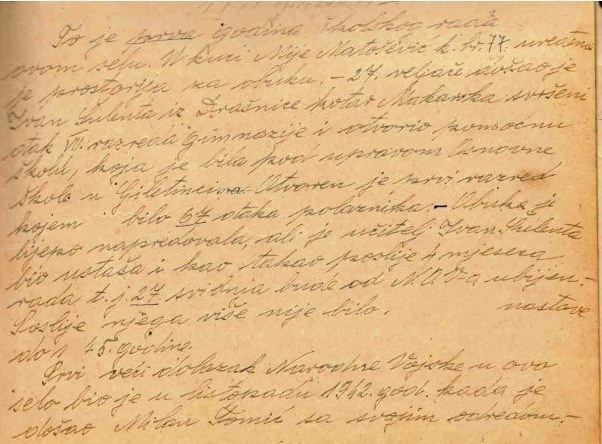 To je prva godina školskog rada
ovom selu. U kući Nije Matošević k. br. 77. uređena
je prostorija za obuku. – 27. veljače došao je
Ivan Šulenta iz Dračnice kotar Makarska svršeni
đak VII. razreda Gimnazije i otvorio pomoćnu
školu, koja je bila pod upravom Osnovne
škole u Giletinci. Otvoren je prvi razred
kojem i bilo 67 đaka polaznika. – Obuka je
lijepo napredovala, ali je učitelj Ivan Šulenta
bio ustaša i kao takav poslije 4 mjeseca
rada t. j. 27. svibnja bude od N.O.V-a ubijen. –
Poslije njega više nije bilo. nastave
do 45. godine.
Prvi veći dolazak Narodne Vojske u ovo
selo bio je u listopadu 1942. god. kada je
došao Milan Tomić sa svojim odredom. –